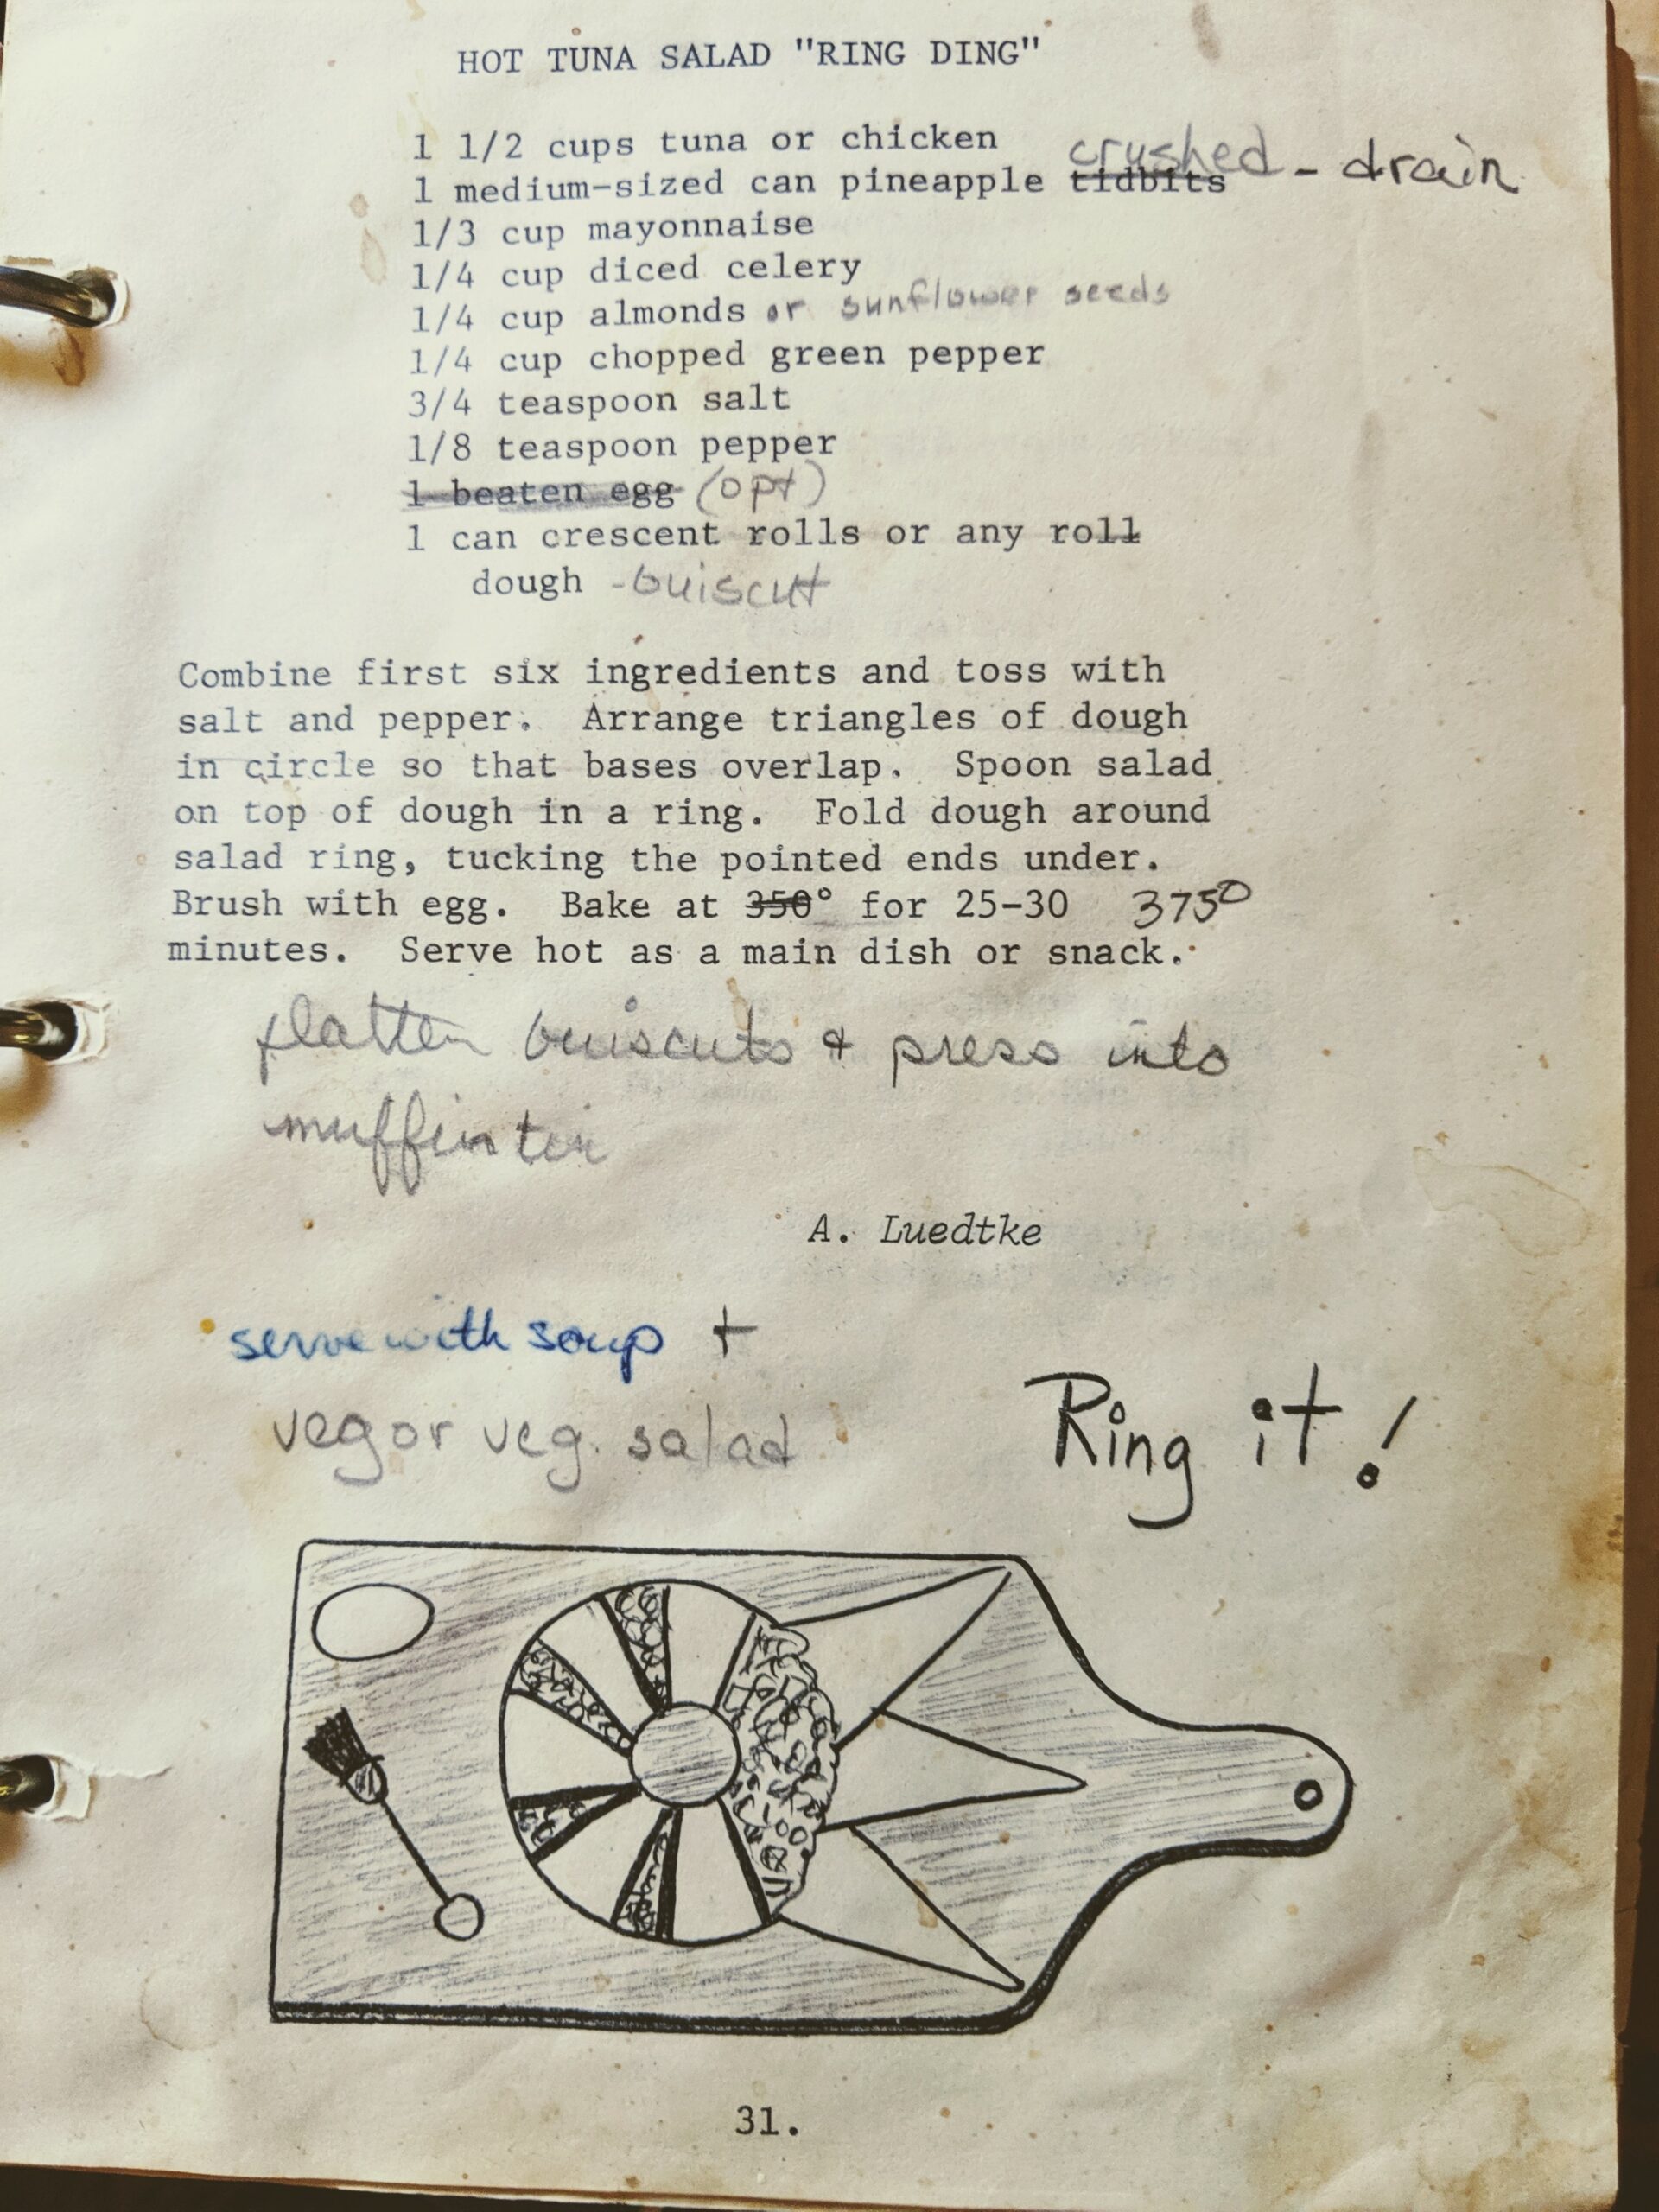 HOT TUNA SALAD "RING DING"
1 1/2 cups tuna or chicken
1 medium-sized can pineapple tidbits crushed - drain
1/3 cup mayonnaise
1/4 cup diced celery
1/4 cup almonds or sunflower seeds
1/4 cup chopped green pepper
3/4 teaspoon salt
1/8 teaspoon pepper
1 beaten egg (opt)
1 can crescent rolls or any roll
dough - buiscut
Combine first six ingredients and toss with
salt and pepper. Arrange triangles of dough
in circle so that bases overlap. Spoon salad
on top of dough in a ring. Fold dough around
salad ring, tucking the pointed ends under.
Brush with egg. Bake at 350° for 25-30 375°
minutes. Serve hot as a main dish or snack.
flatten buiscuts & press into
muffin tin
A. Luedtke
serve with soup +
veg or veg. salad
Ring it!
31.